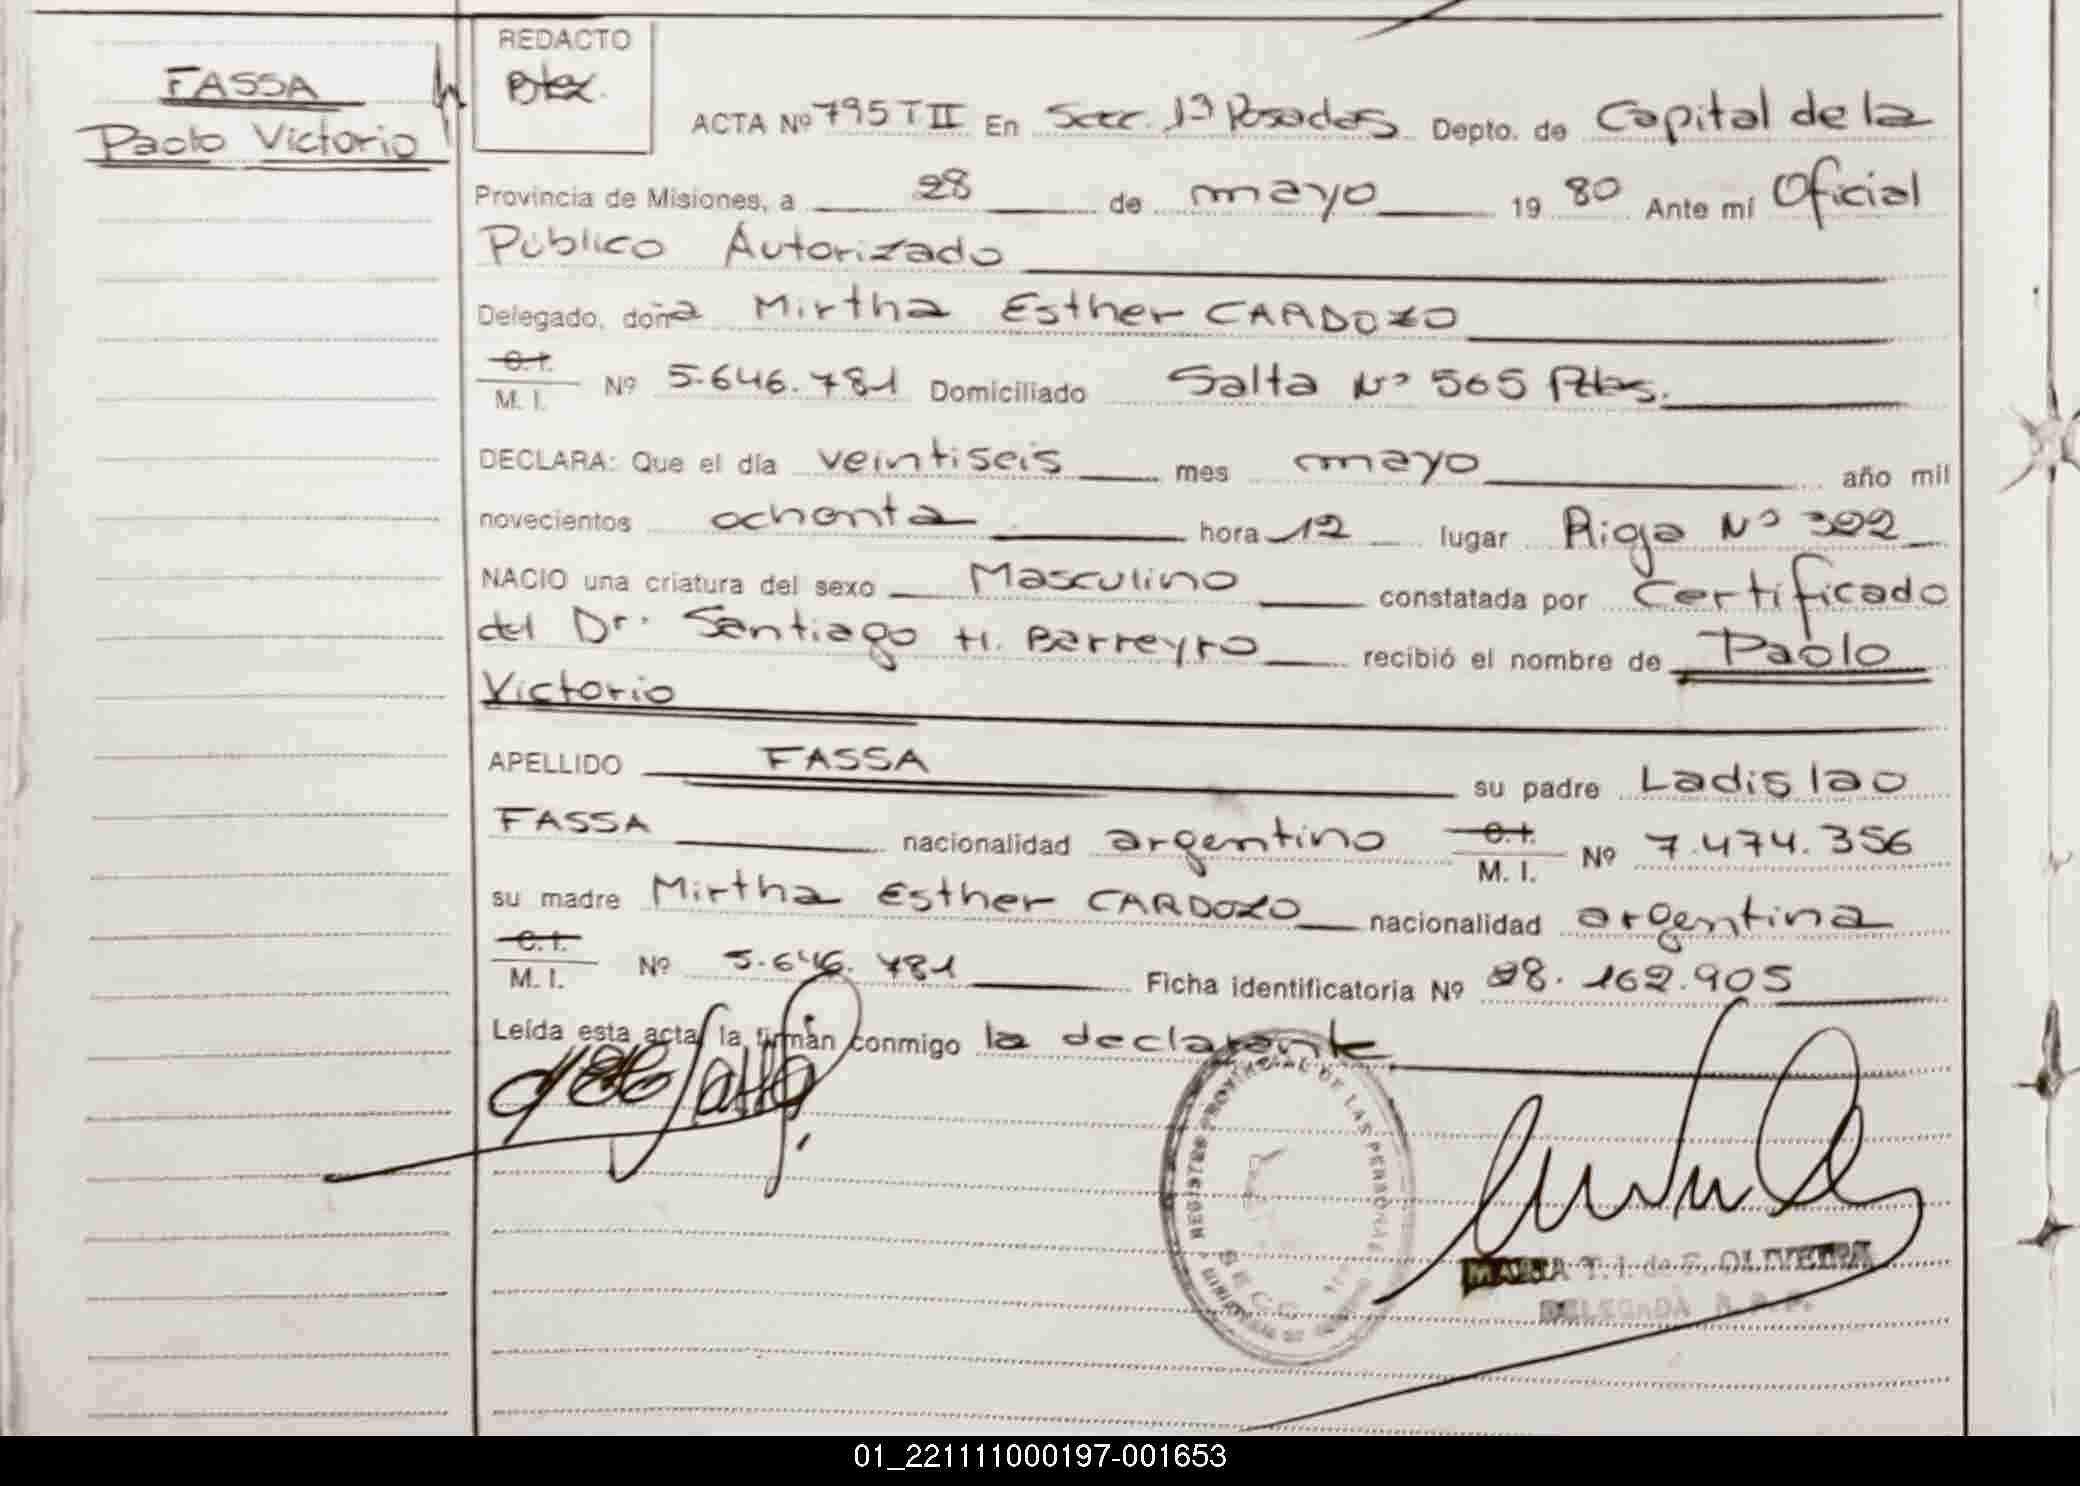 FASSA
Paolo Victorio
REDACTO
ACTA Nº 795 T II En Secc. 1ª Posadas Depto. de Capital de la
Provincia de Misiones, a 28 de mayo 1980 Ante mí Oficial
Público Autorizado
Delegado, doña Mirtha Esther CARDOZO
C. I.
M. I. Nº 5.646.781 Domiciliado Salta Nº 565 Pdas.
DECLARA: Que el día veintiseis mes mayo año mil
novecientos ochenta hora 12 lugar Rioja Nº 322
NACIO una criatura del sexo Masculino constatada por Certificado
del Dr. Santiago H. Barreyro recibió el nombre de Paolo
Victorio
APELLIDO FASSA su padre Ladislao
FASSA nacionalidad argentino C. I. M. I. Nº 7.474.356
su madre Mirtha Esther CARDOZO nacionalidad argentina
C. I.
M. I. Nº 5.646.781 Ficha identificatoria Nº 28.162.905
Leída esta acta, la firman conmigo la declarante
REGISTRO PROVINCIAL DE LAS PERSONAS
MINISTERIO DE GOBIERNO
MARIA T. I. de F. OLIVEIRA
DELEGADA R. P. P.
01_221111000197-001653